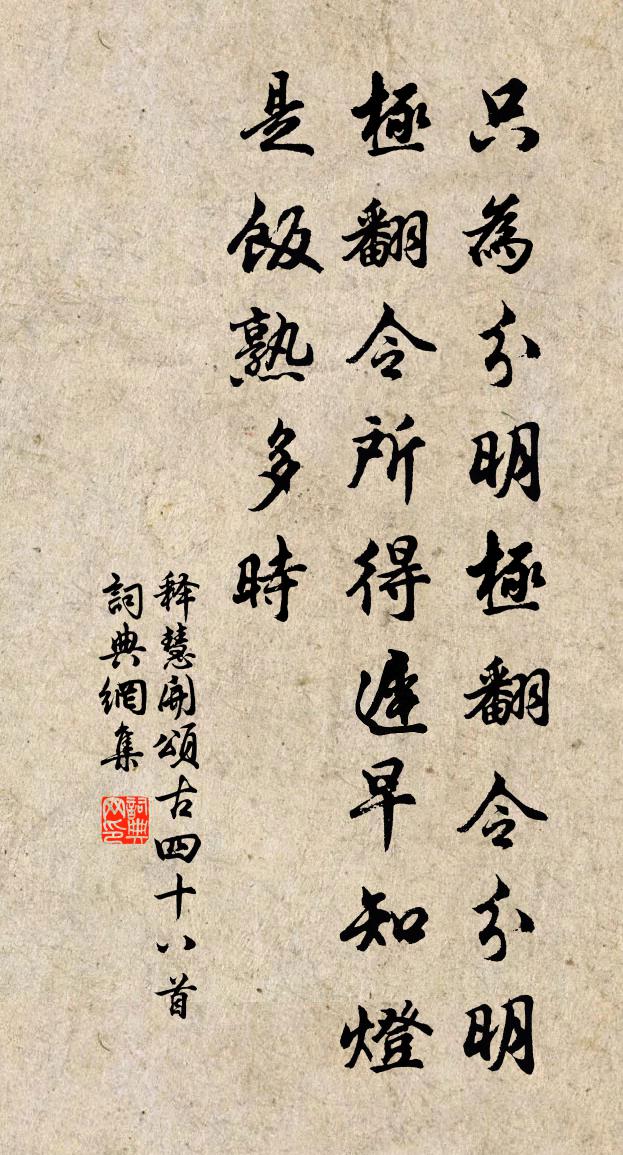 只為分明極翻令分明
極翻令所得遲早知燈
是飯熟多時
释慧開頌古四十八首
詞典網集
詞典网印